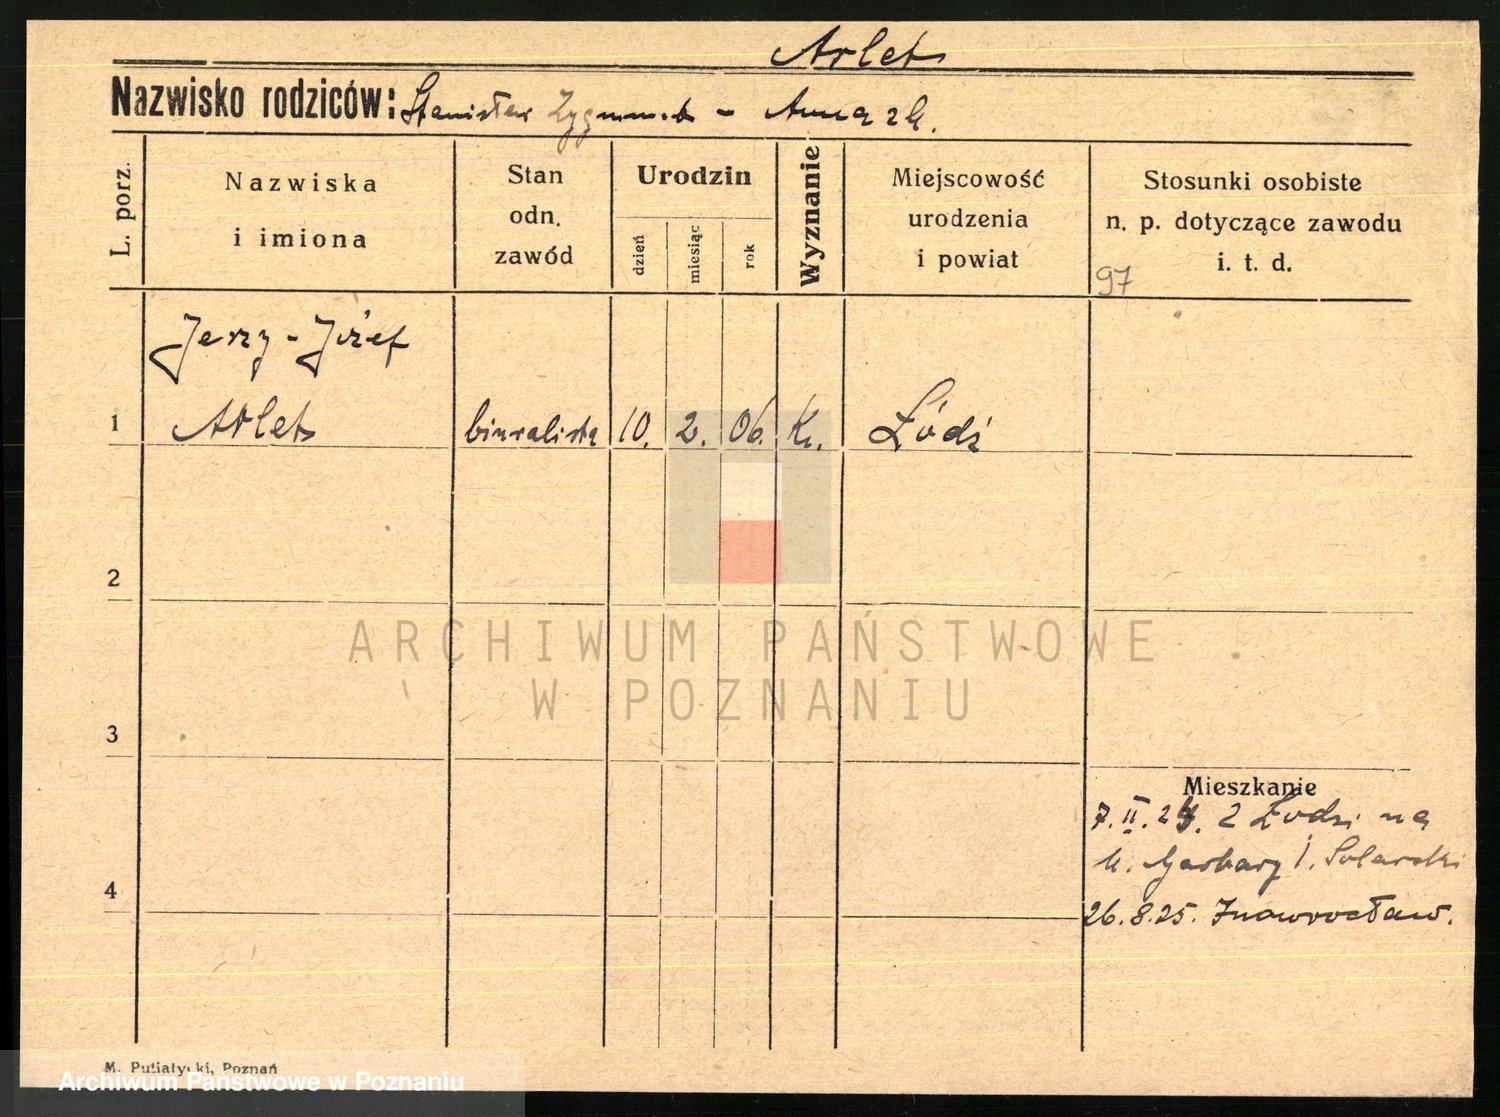 Arlet
Nazwisko rodziców: Stanisław Zygmunt - Anna z G.
L. porz.
Nazwiska
i imiona
Stan
odn.
zawód
Urodzin
dzień
miesiąc
rok
Wyznanie
Miejscowość
urodzenia
i powiat
Stosunki osobiste
n. p. dotyczące zawodu
i. t. d.
97
Jerzy - Józef
1 Arlet biuralista 10. 2. 06. Kt. Łódź
2
3
4
Mieszkanie
7.II.24. z Łodzi na
Garbary Solarski
26.8.25. Inowrocław.
ARCHIWUM PAŃSTWOWE
W POZNANIU
M. Putiatycki, Poznań
Archiwum Państwowe w Poznaniu